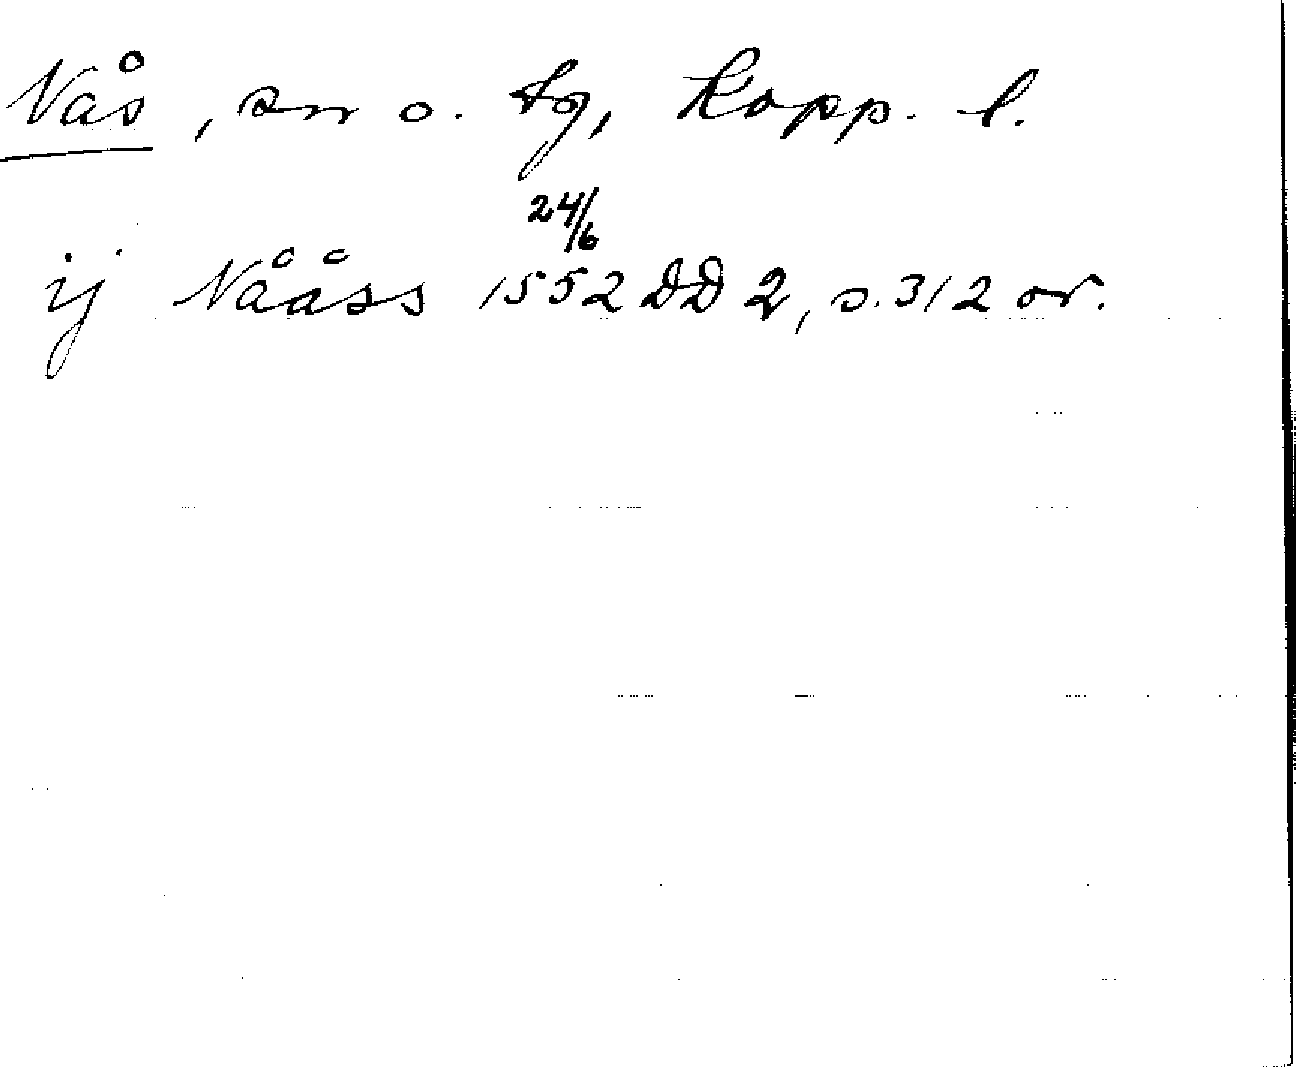 Nås, sn o. tg, Kopp. l.
24/6
ij Nååss 1552 DD 2, s. 312 or.